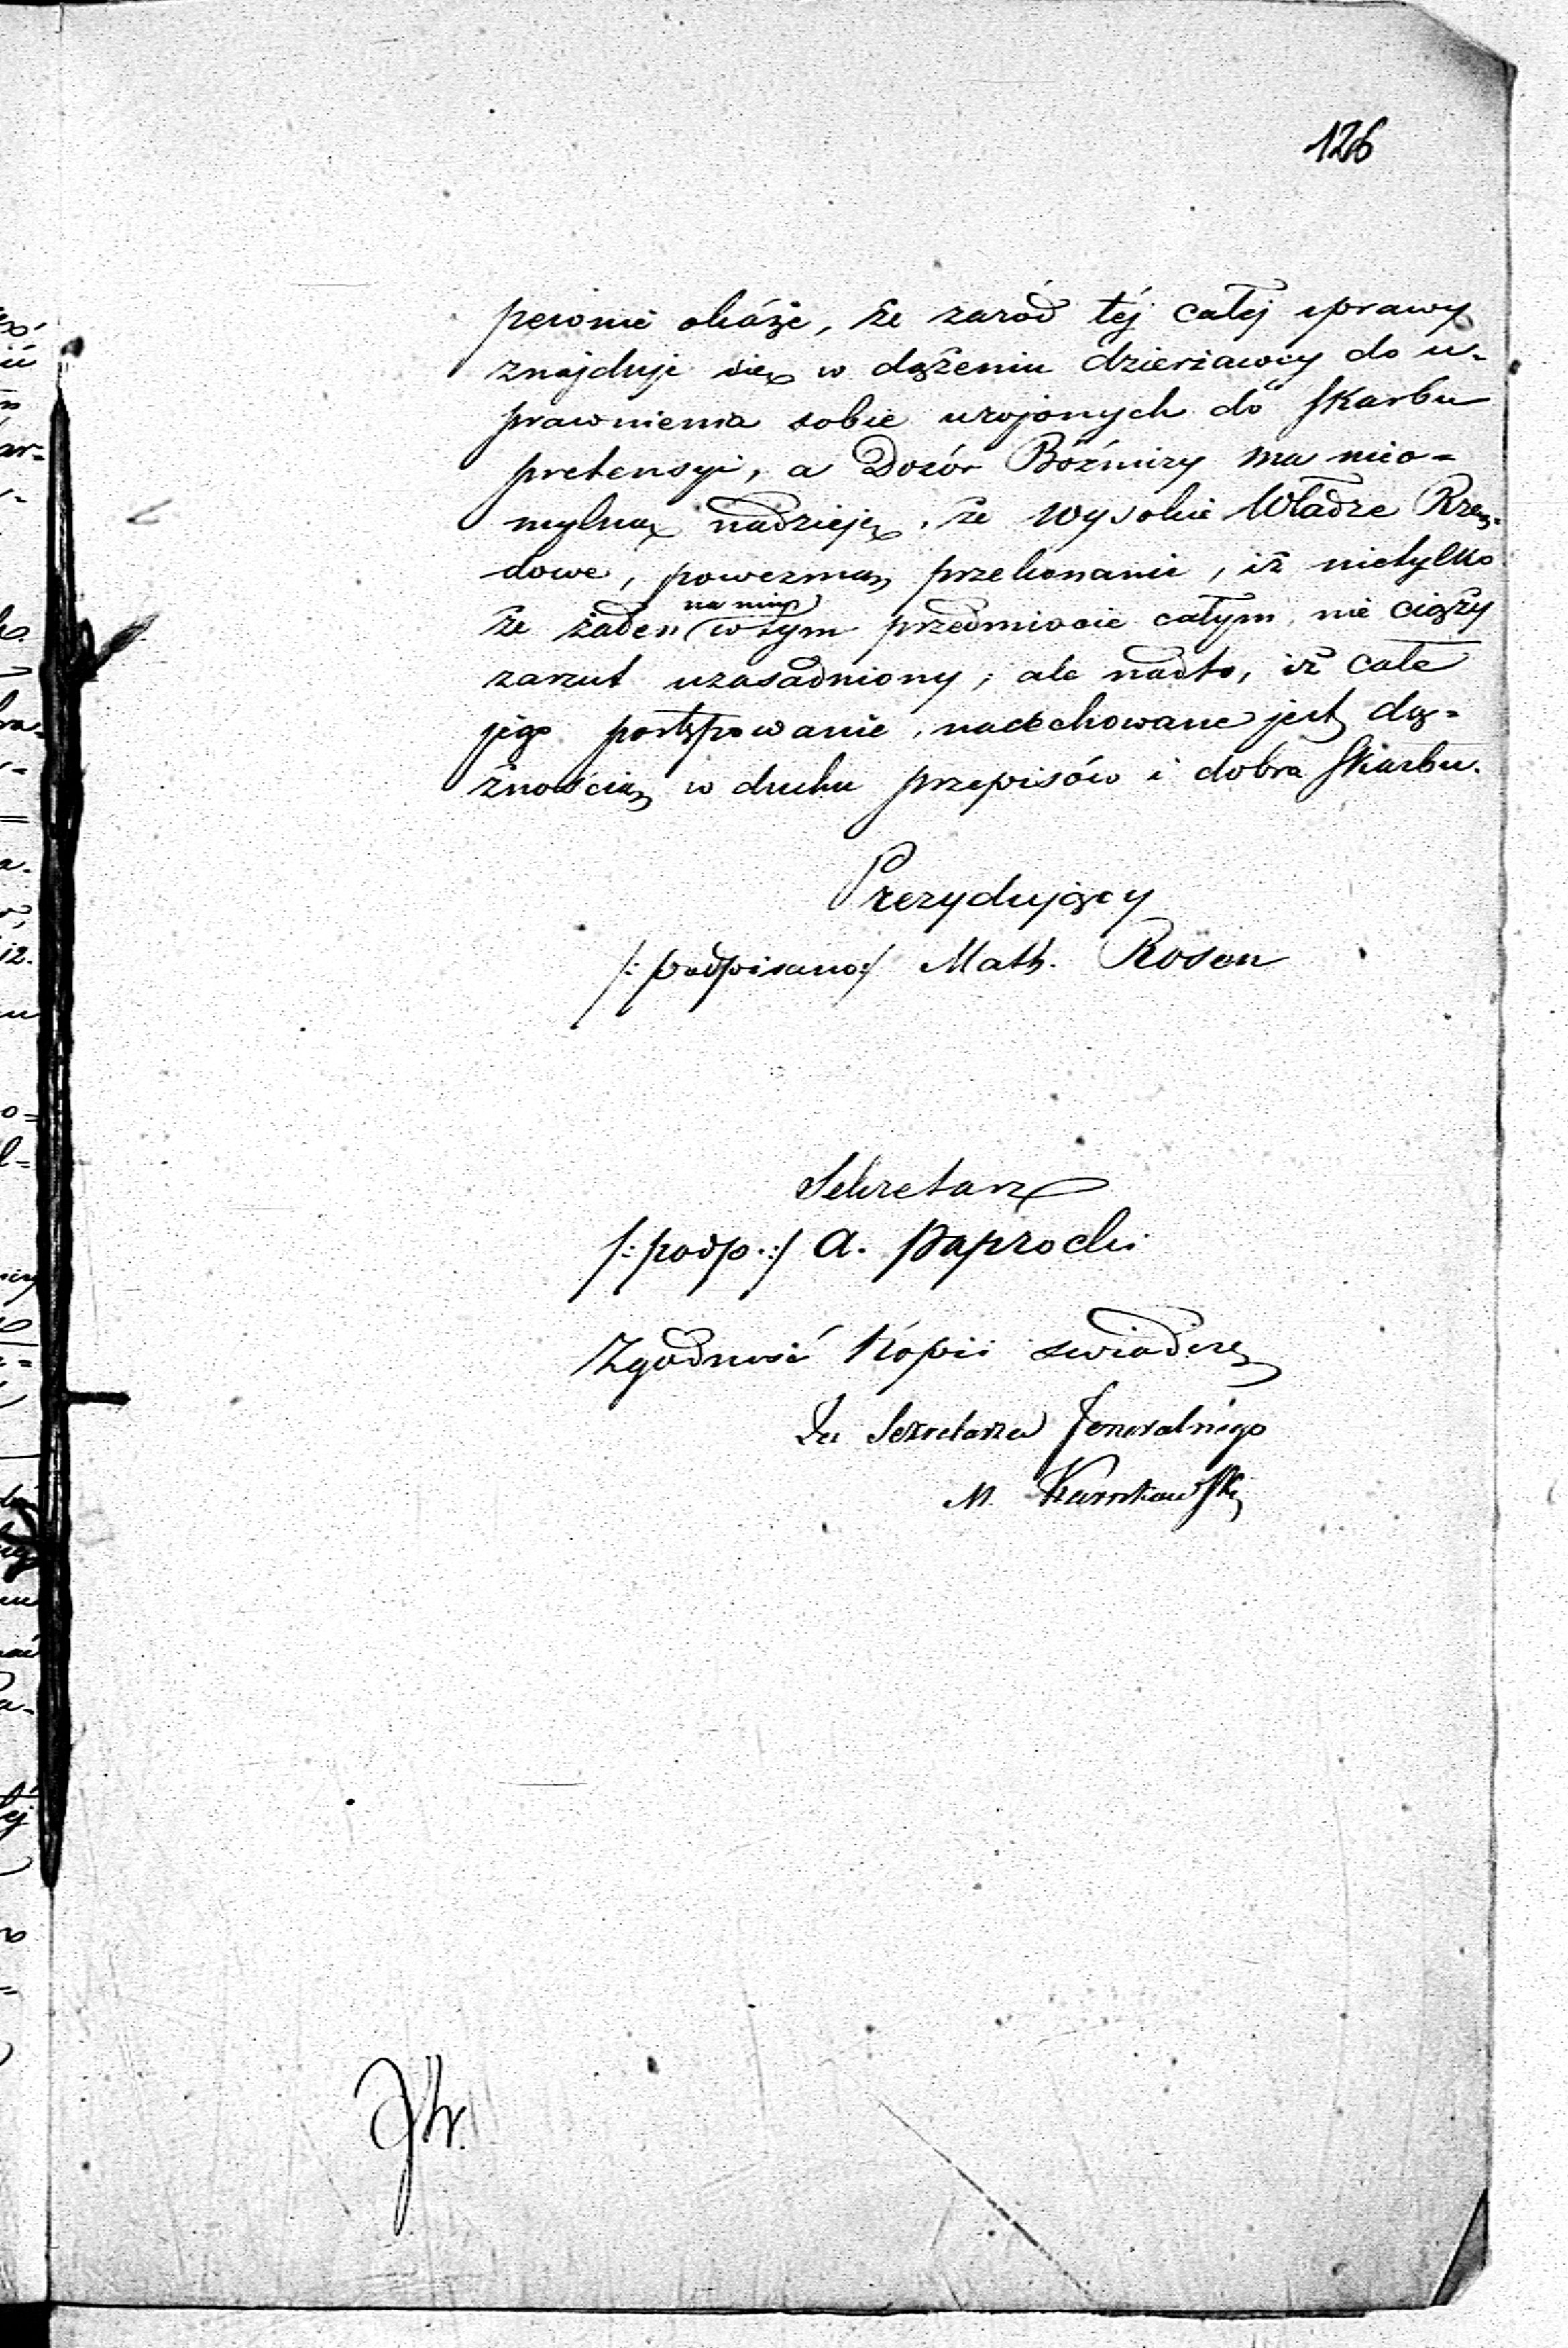 126
pewnie okáże, że zaród téj całéj sprawy
znajduje się w dążeniu dzierżawcy do u-
prawnienia sobie urojonych do Skarbu
pretensyi, a Dozór Bóźniczy ma nieo=
mylną nadzieję, że Wysokie Władze Rzą=
dowe, powezmą przekonanie, iż nietylko
na nim
że żaden w tym przedmiocie całym, nie ciąży
zarzut uzasadniony, ale nadto, iż całe
jego postępowanie, nacechowane jest dą=
żnością w duchu przepisów i dobra Skarbu.
Prezydujący
/: podpisano :/ Math. Rosen
Sekretarz
/: podp. :/ A. Paprocki
Zgodność Kopii świadczę
Za Sekretarza Jeneralnego
M. Karnkowski